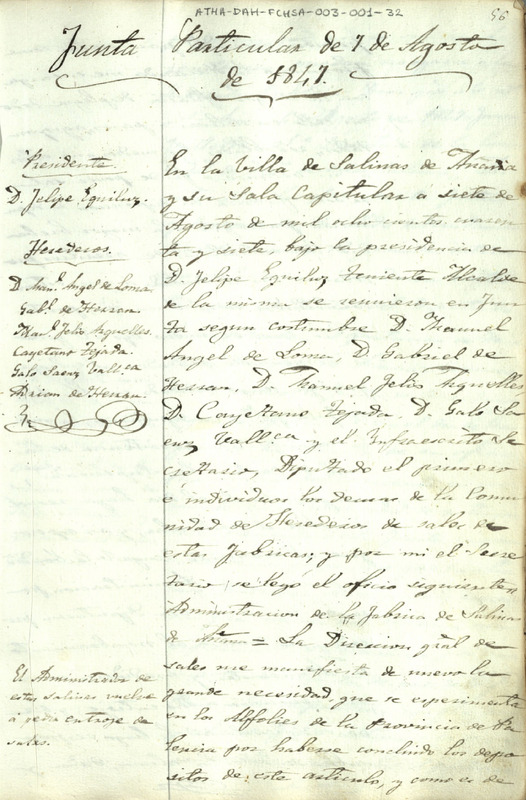 ATHA-DAH-FCHSA-003-001-32
56
Junta Particular de 7 de Agosto
de 1847.
Presidente
D. Felipe Eguiluz.
Herederos.
D. Man.l Angel de Loma
Gab.l de Herran.
Man.l Jelis Arguelles.
Cayetano Tejada.
Galo Saenz Vallica
Adrian de Herran.
En la Villa de Salinas de Añana
y su Sala Capitular á siete de
Agosto de mil ocho cientos cuaren
ta y siete, bajo la presidencia de
D. Felipe Eguiluz teniente Alcalde
de la misma se reunieron en Jun
ta segun costumbre D. Manuel
Angel de Loma, D. Gabriel de
Herran, D. Manuel Jelis Arguelles
D. Cayetano Tejada, D. Galo Sa
enz Vallica y el Infraescrito Se
cretario, Diputado el primero
é individuos los demas de la Comu
nidad de Herederos de sales de
estas Fabricas; y por mi el Secre
tario se leyó el oficio siguiente=
Administracion de la Fabrica de Salinas
de Añana = La Direccion gral de
sales me manifiesta de nuevo la
grande necesidad, que se esperimenta
en los Alfolies de la Provincia de Pa
lencia por haberse concluido los depo
sitos de este articulo, y como es de
El Administrador de
estas salinas vuelve
á pedir entroje de
sales.